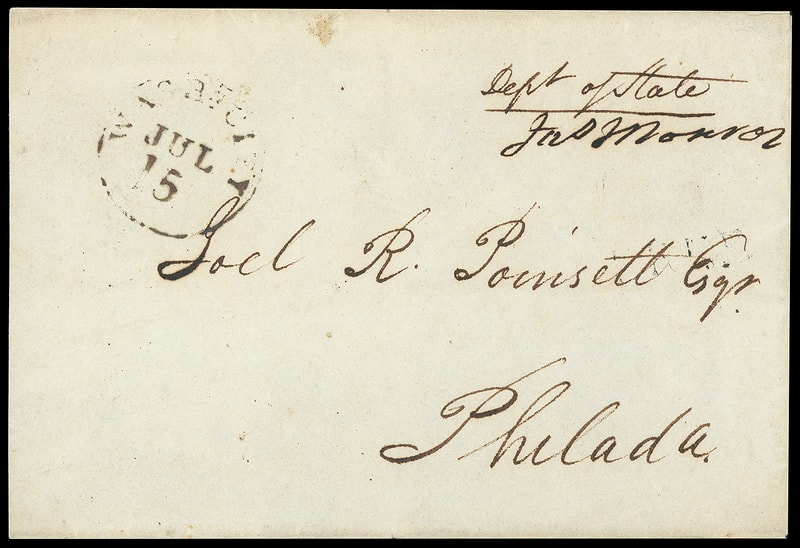 Dept of State
Jas Monroe
WASHN CITY
JUL
15
Joel R. Poinsett Esqr.
Philada.